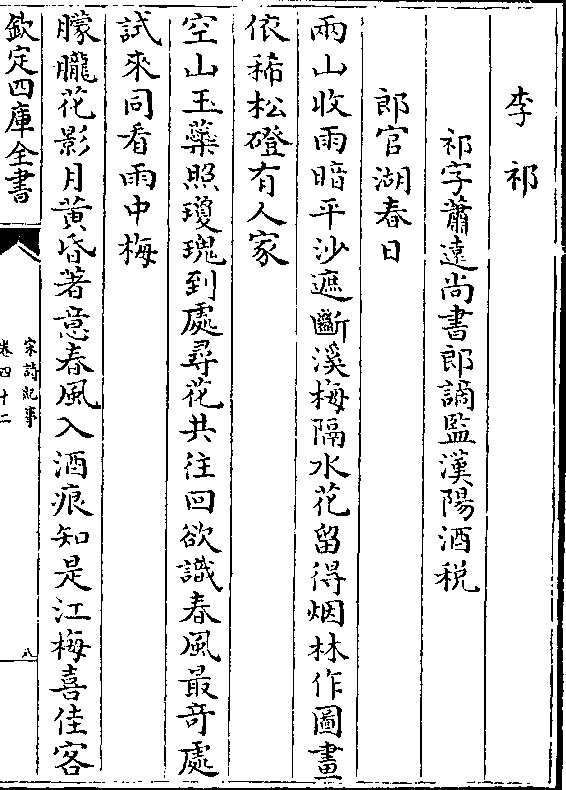 李祁
祁字蕭遠尚書郎謫監漢陽酒税
郎官湖春日
兩山收雨暗平沙遮斷溪梅隔水花留得烟林作圖畫
依稀松磴有人家
空山玉蘂照瓊瑰到處尋花共往回欲識春風最竒處
試來同看雨中梅
朦朧花影月黄昏著意春風入酒痕知是江梅喜佳客
欽定四庫全書
宋詩紀事
卷四十二
八